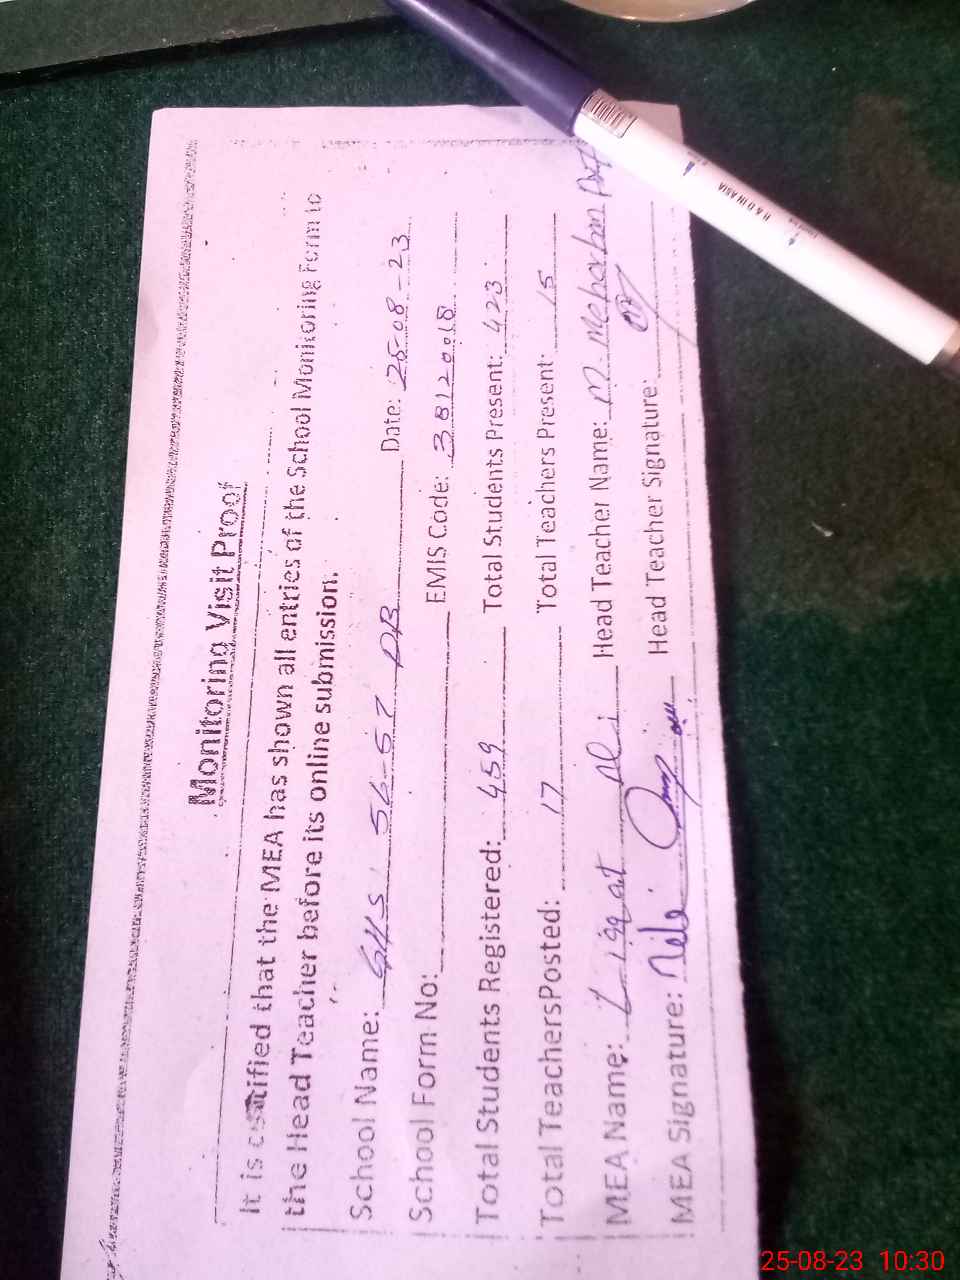 Monitoring Visit Proof
It is certified that the MEA has shown all entries of the School Monitoring Form to
the Head Teacher before its online submission.
School Name: GHS 56-57 DB Date: 25-08-23
School Form No: EMIS Code: 38120018
Total Students Registered: 459 Total Students Present: 423
Total Teachers Posted: 17 Total Teachers Present: 15
MEA Name: Liaqat Ali Head Teacher Name: M.
MEA Signature: Head Teacher Signature:
R & D IN ASIA
25-08-23 10:30